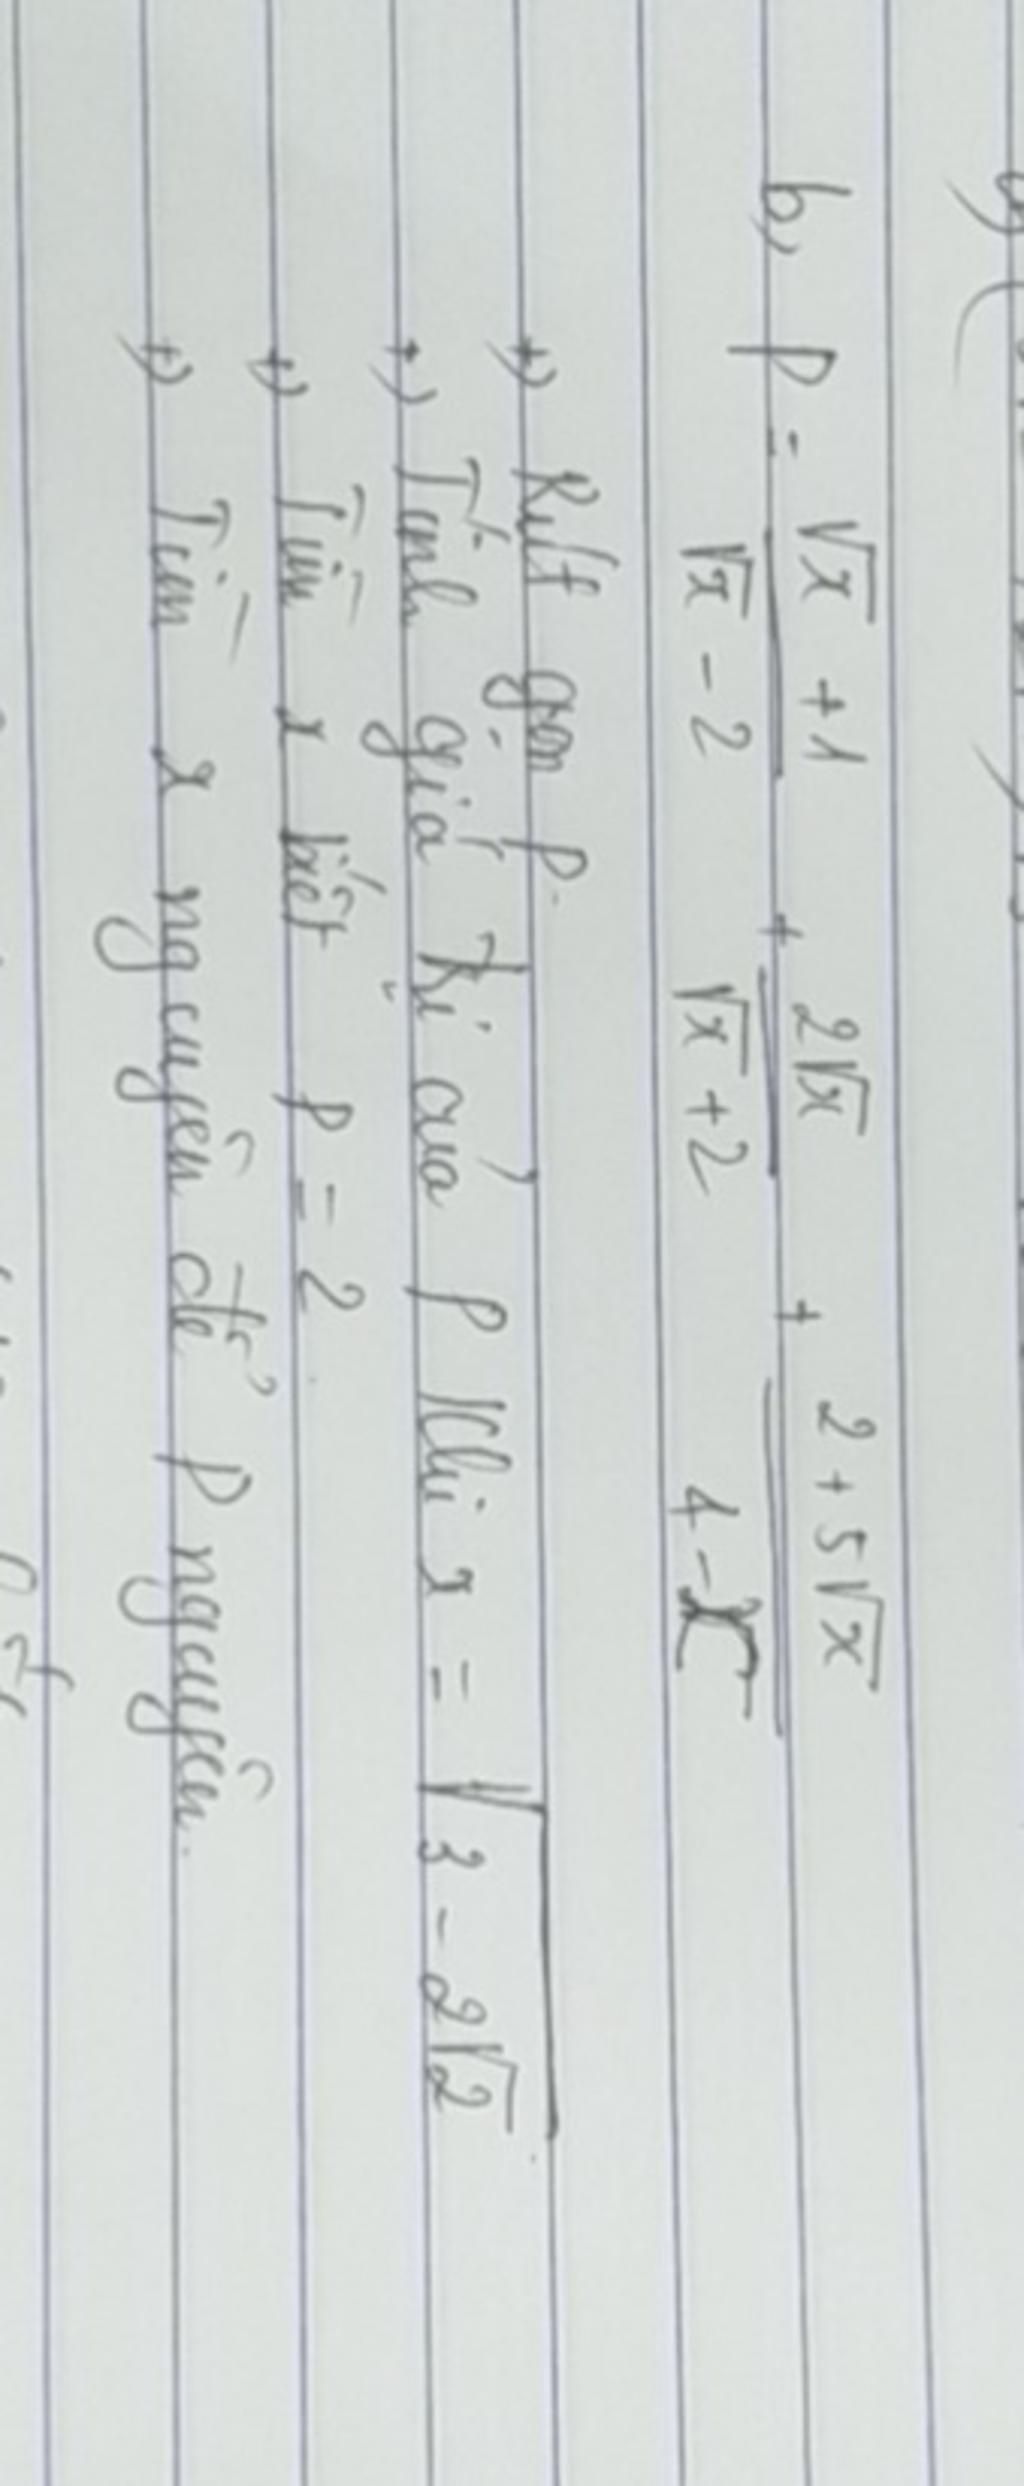 b, P = (√x + 1)/(√x - 2) + (2√x)/(√x + 2) + (2 + 5√x)/(4 - x)
+) Rút gọn P.
+) Tính giá trị của P khi x = √(3 - 2√2).
+) Tìm x biết P = 2.
+) Tìm x nguyên để P nguyên.